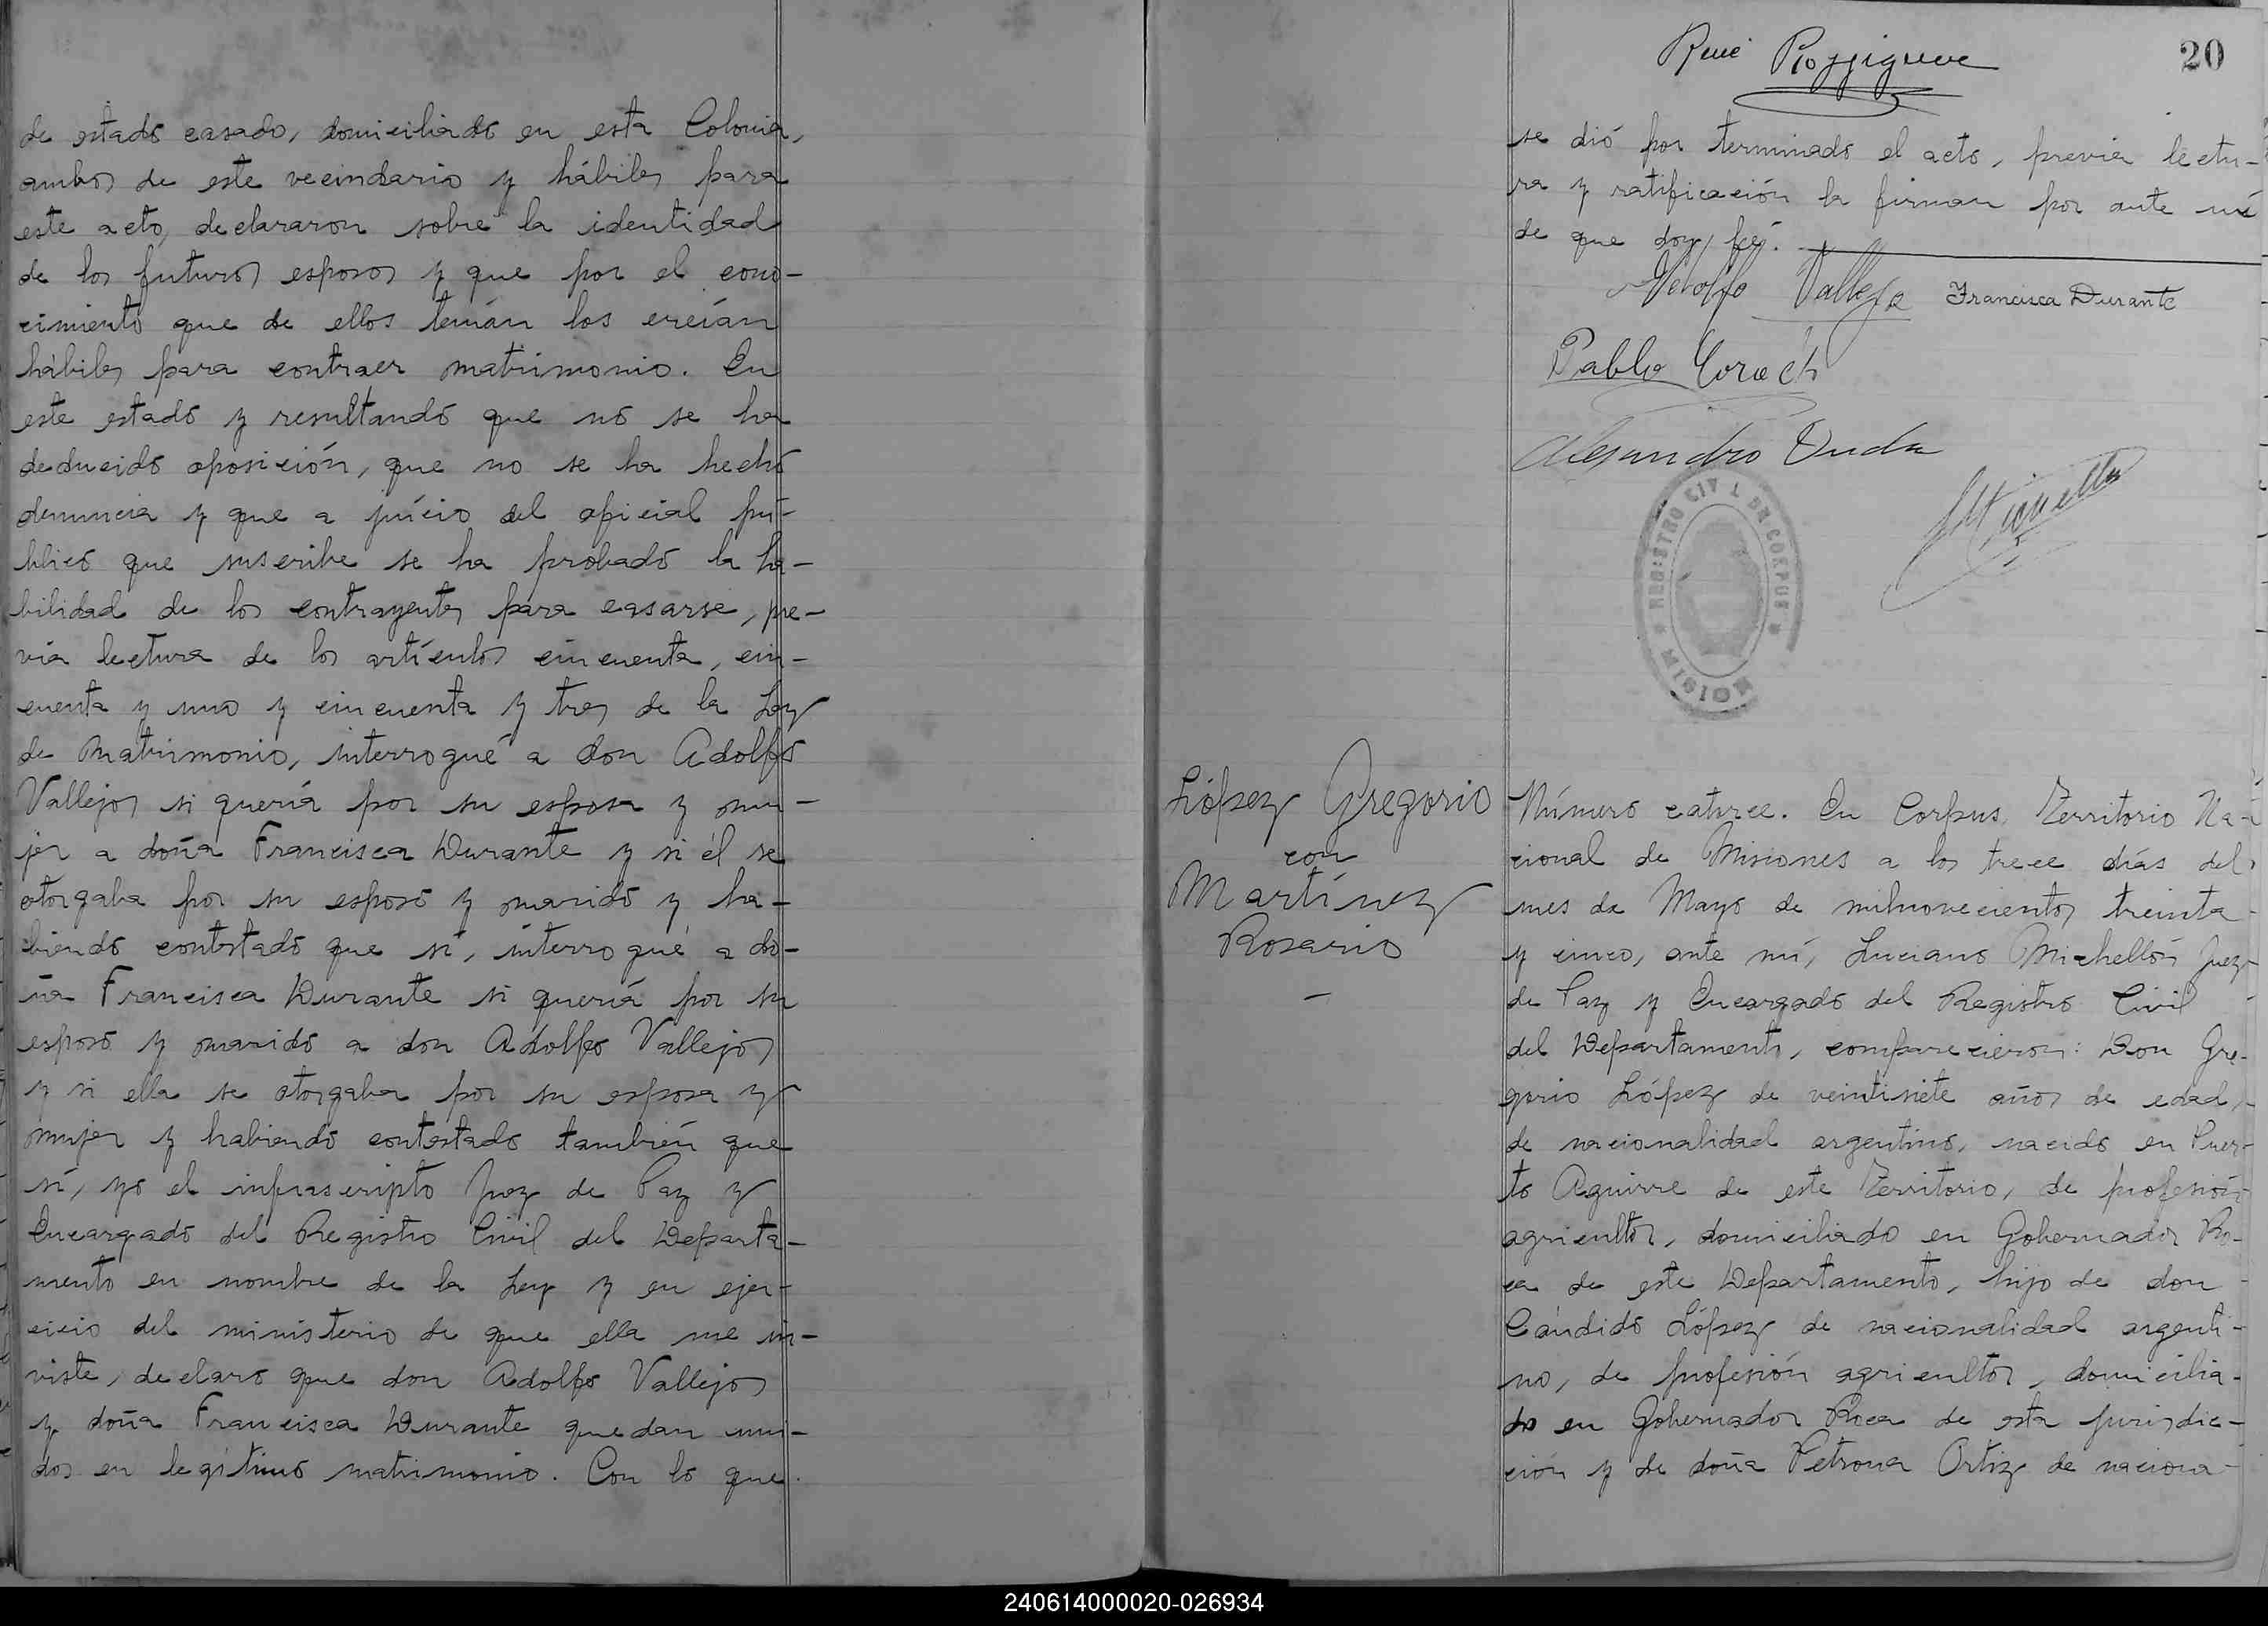 de estado casado, domiciliado en esta Colonia,
ambos de este vecindario y hábiles para
este acto, declararon sobre la identidad
de los futuros esposos y que por el cono-
cimiento que de ellos tenían los creían
hábiles para contraer matrimonio. En
este estado y resultando que no se ha
deducido oposición, que no se ha hecho
denuncia y que a juicio del oficial pú-
blico que suscribe se ha probado la ha-
bilidad de los contrayentes para casarse, pre-
via lectura de los artículos cincuenta, cin-
cuenta y uno y cincuenta y tres de la Ley
de Matrimonio, interrogué a don Adolfo
Vallejos si quería por su esposa y mu-
jer a doña Francisca Durante y si él se
otorgaba por su esposo y marido y ha-
biendo contestado que sí, interrogué a do-
ña Francisca Durante si quería por su
esposo y marido a don Adolfo Vallejos
y si ella se otorgaba por su esposa y
mujer y habiendo contestado también que
sí, yo el infrascripto Juez de Paz y
Encargado del Registro Civil del Departa-
mento en nombre de la Ley y en ejer-
cicio del ministerio de que ella me in-
viste, declaro que don Adolfo Vallejos
y doña Francisca Durante quedan uni-
dos en legítimo matrimonio. Con lo que
20
se dió por terminado el acto, previa lectu-
ra y ratificación la firman por ante mí
de que doy fé.
Adolfo Vallejo Francisca Durante
Pablo
Alejandro Duda
REGISTRO CIVIL DE CORPUS
MISION
López Gregorio
con
Martínez
Rosario
Número catorce. En Corpus, Territorio Na-
cional de Misiones a los trece días del
mes de Mayo de milnovecientos treinta
y cinco, ante mí, Luciano Michellón Juez
de Paz y Encargado del Registro Civil
del Departamento, comparecieron: Don Gre-
gorio López de veintisiete años de edad,
de nacionalidad argentino, nacido en Puer-
to Aguirre de este Territorio, de profesión
agricultor, domiciliado en Gobernador Ro-
ca de este Departamento, hijo de don
Cándido López de nacionalidad argenti-
no, de profesión agricultor, domicilia-
do en Gobernador Roca de esta jurisdic-
ción y de doña Petrona Ortiz de naciona-
240614000020-026934